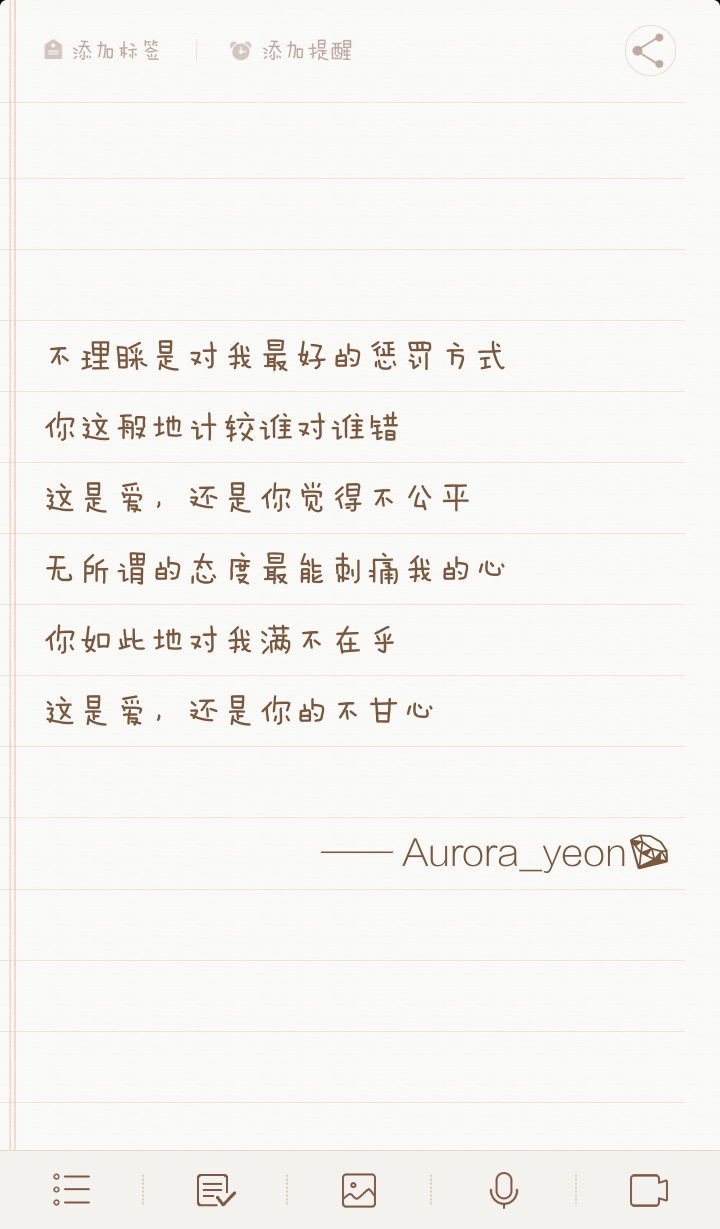 添加标签 添加提醒
不理睬是对我最好的惩罚方式
你这般地计较谁对谁错
这是爱，还是你觉得不公平
无所谓的态度最能刺痛我的心
你如此地对我满不在乎
这是爱，还是你的不甘心
—— Aurora_yeon